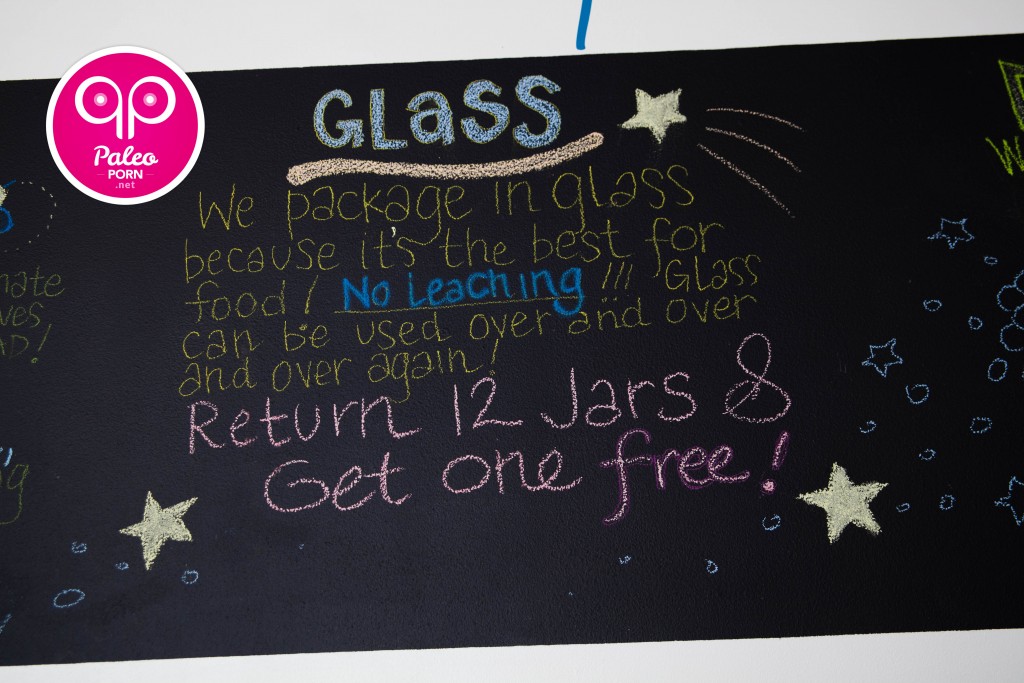 Paleo
PORN
.net
GLaSS
We package in glass
because it's the best for
food! No Leaching!!! Glass
can be used over and over
and over again!
Return 12 Jars &
Get one free!